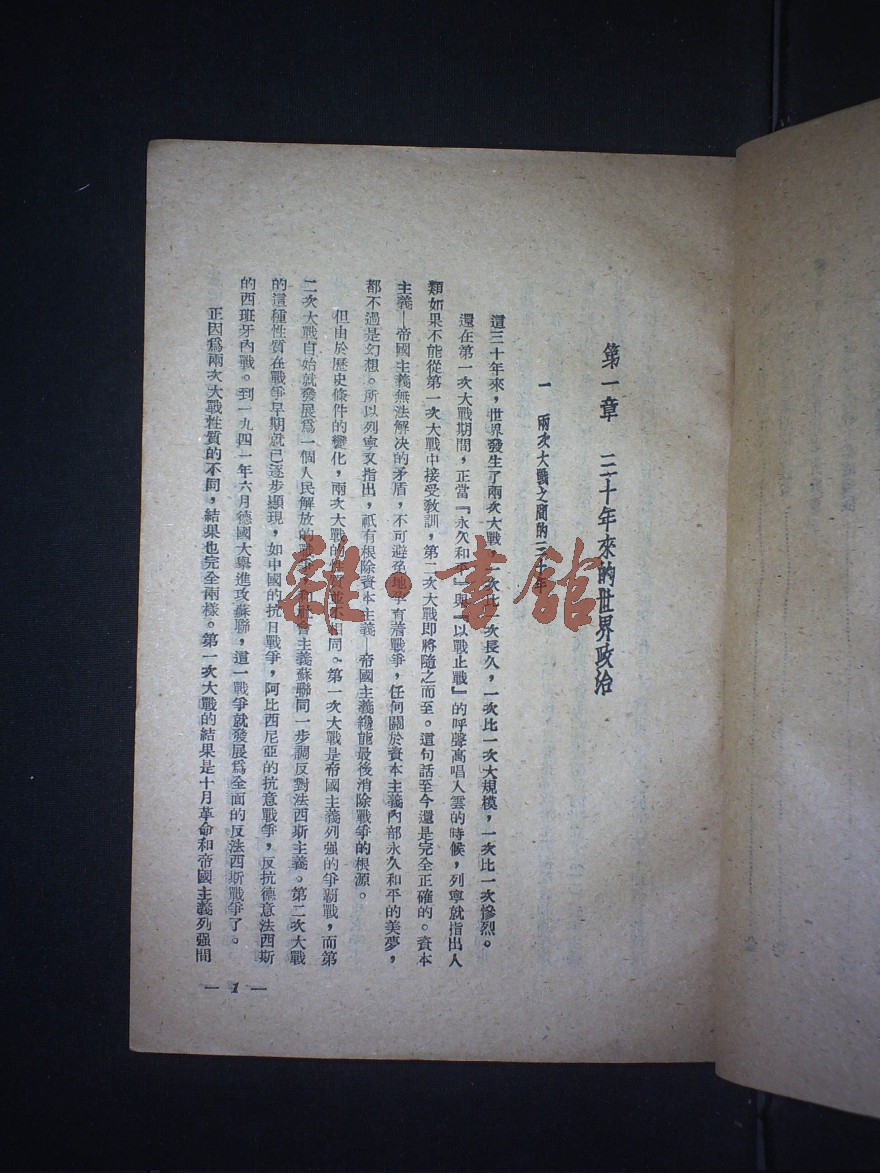 第一章 三十年來的世界政治
一 兩次大戰之間的三十年
這三十年來，世界發生了兩次大戰，一次比一次長久，一次比一次大規模，一次比一次慘烈。
還在第一次大戰期間，正當『永久和平』與『以戰止戰』的呼聲高唱入雲的時候，列寧就指出人
類如果不能從第一次大戰中接受教訓，第二次大戰即將隨之而至。這句話至今還是完全正確的。資本
主義—帝國主義無法解決的矛盾，不可避免地孕育着戰爭，任何關於資本主義內部永久和平的美夢，
都不過是幻想。所以列寧又指出，祇有根除資本主義—帝國主義纔能最後消除戰爭的根源。
但由於歷史條件的變化，兩次大戰的性質並不相同。第一次大戰是帝國主義列强的爭霸戰，而第
二次大戰自始就發展爲一個人民解放的戰爭，和社會主義蘇聯同一步調反對法西斯主義。第二次大戰
的這種性質在戰爭早期就已逐步顯現，如中國的抗日戰爭，阿比西尼亞的抗意戰爭，反抗德意法西斯
的西班牙內戰。到一九四一年六月德國大舉進攻蘇聯，這一戰爭就發展爲全面的反法西斯戰爭了。
正因爲兩次大戰性質的不同，結果也完全兩樣。第一次大戰的結果是十月革命和帝國主義列强間
— 1 —
雜·書館